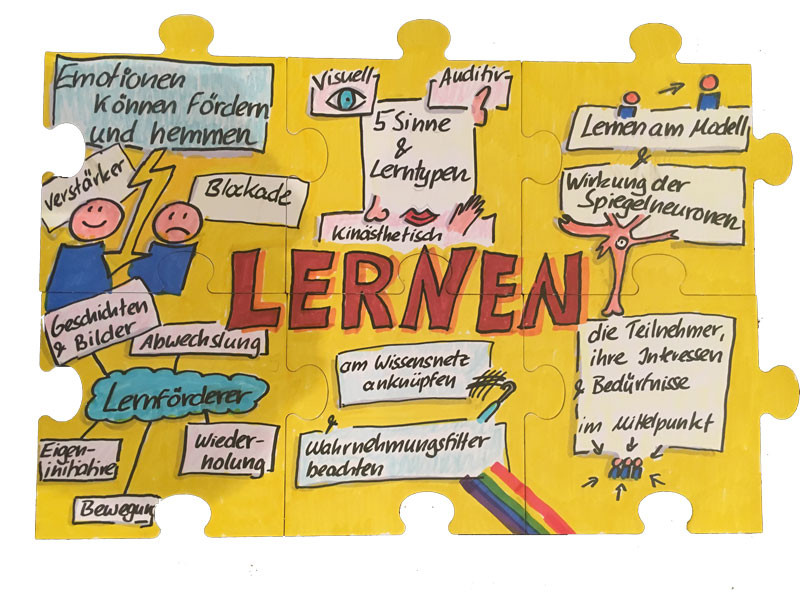 Emotionen
können Fördern
und hemmen
Verstärker
Blockade
Visuell
Auditiv
5 Sinne
&
Lerntypen
Kinästhetisch
Lernen am Modell
&
Wirkung der
Spiegelneuronen
LERNEN
Geschichten
& Bilder
Abwechslung
Lernförderer
Eigen-
initiative
Wieder-
holung
Bewegung
am Wissensnetz
anknüpfen
&
Wahrnehmungsfilter
beachten
die Teilnehmer,
ihre Interessen
& Bedürfnisse
im Mittelpunkt